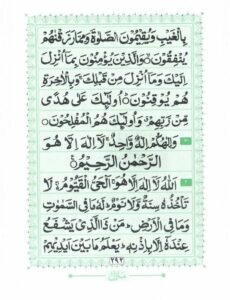 بِالْغَيْبِ وَيُقِيْمُوْنَ الصَّلٰوةَ وَمِمَّا رَزَقْنٰهُمْ
يُنْفِقُوْنَ ۙ وَالَّذِيْنَ يُؤْمِنُوْنَ بِمَآ اُنْزِلَ
اِلَيْكَ وَمَآ اُنْزِلَ مِنْ قَبْلِكَ ۚ وَبِالْاٰخِرَةِ
هُمْ يُوْقِنُوْنَ ؕ اُولٰٓئِكَ عَلٰى هُدًى
مِّنْ رَّبِّهِمْ ۗ وَاُولٰٓئِكَ هُمُ الْمُفْلِحُوْنَ
وَاِلٰهُكُمْ اِلٰهٌ وَّاحِدٌ ۚ لَآ اِلٰهَ اِلَّا هُوَ
الرَّحْمٰنُ الرَّحِيْمُ
اَللّٰهُ لَآ اِلٰهَ اِلَّا هُوَ ۚ اَلْحَيُّ الْقَيُّوْمُ ۚ لَا
تَاْخُذُهٗ سِنَةٌ وَّلَا نَوْمٌ ؕ لَهٗ مَا فِى السَّمٰوٰتِ
وَمَا فِى الْاَرْضِ ؕ مَنْ ذَا الَّذِيْ يَشْفَعُ
عِنْدَهٗٓ اِلَّا بِاِذْنِهٖ ؕ يَعْلَمُ مَا بَيْنَ اَيْدِيْهِمْ
٢٩٢